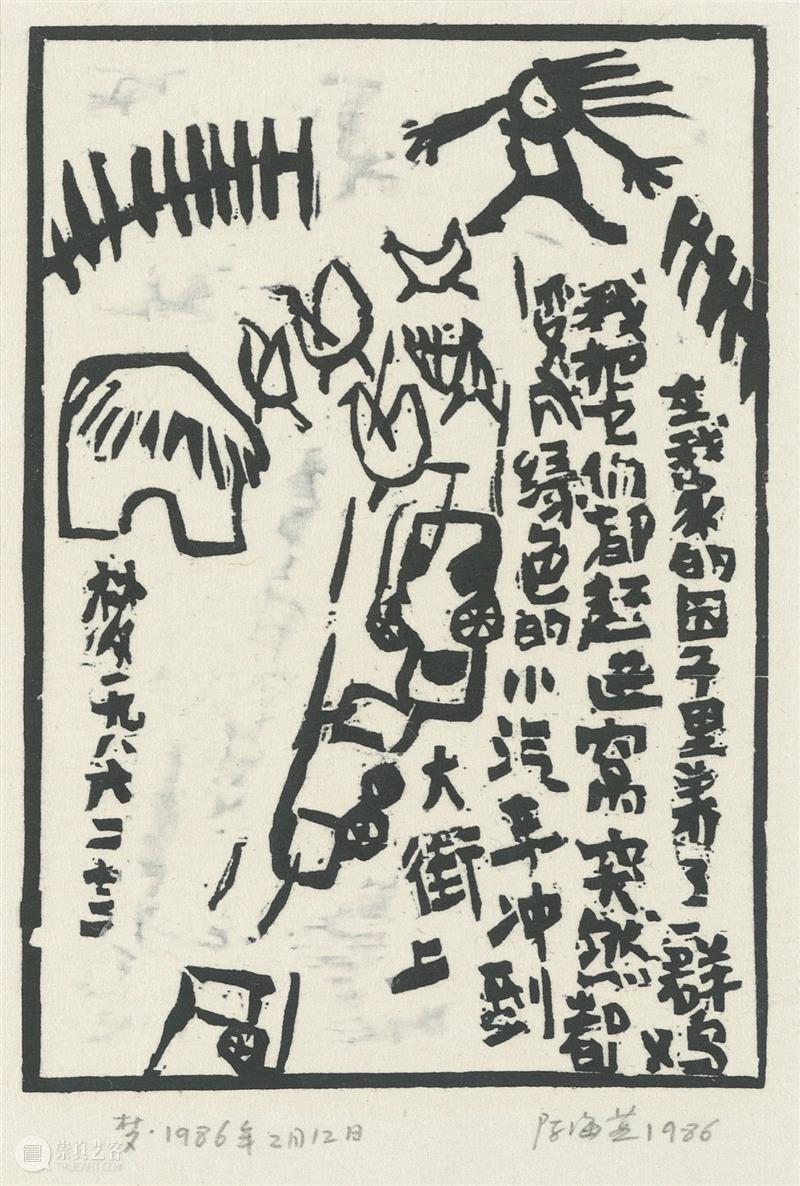 在我家的园子里养了一群鸡
我把它们都赶进窝突然都
变成绿色的小汽车冲到
大街上
梦一九八六二十二
梦·1986年2月12日
陈海燕1986
崇真艺客
TRUEART.COM